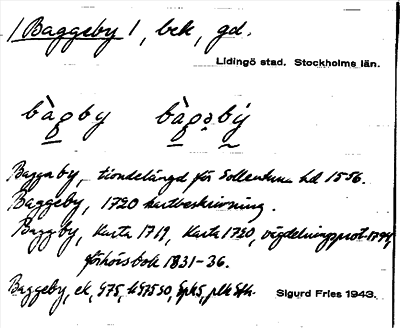 /Baggeby/, bek, gd.
Lidingö stad. Stockholms län.
bàgby bàgəbý
Baggaby, tiondelängd för Sollentuna hd 1556.
Baggeby, 1720 kartbeskrivning.
Baggby, Karta 1719, Karta 1720, vägdelningsprot 1794
förhörsbok 1831-36.
Baggeby, ek,
Sigurd Fries 1943.